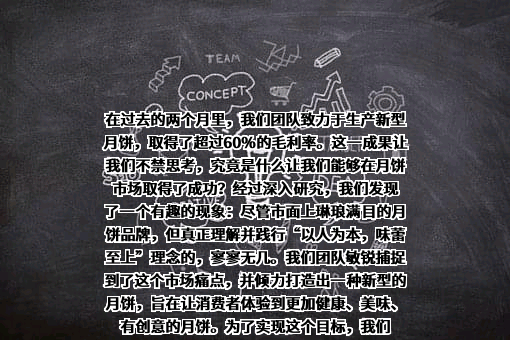 TEAM
CONCEPT
在过去的两个月里，我们团队致力于生产新型
月饼，取得了超过60%的毛利率。这一成果让
我们不禁思考，究竟是什么让我们能够在月饼
市场取得了成功？经过深入研究，我们发现
了一个有趣的现象：尽管市面上琳琅满目的月
饼品牌，但真正理解并践行“以人为本，味蕾
至上”理念的，寥寥无几。我们团队敏锐捕捉
到了这个市场痛点，并倾力打造出一种新型的
月饼，旨在让消费者体验到更加健康、美味、
有创意的月饼。为了实现这个目标，我们